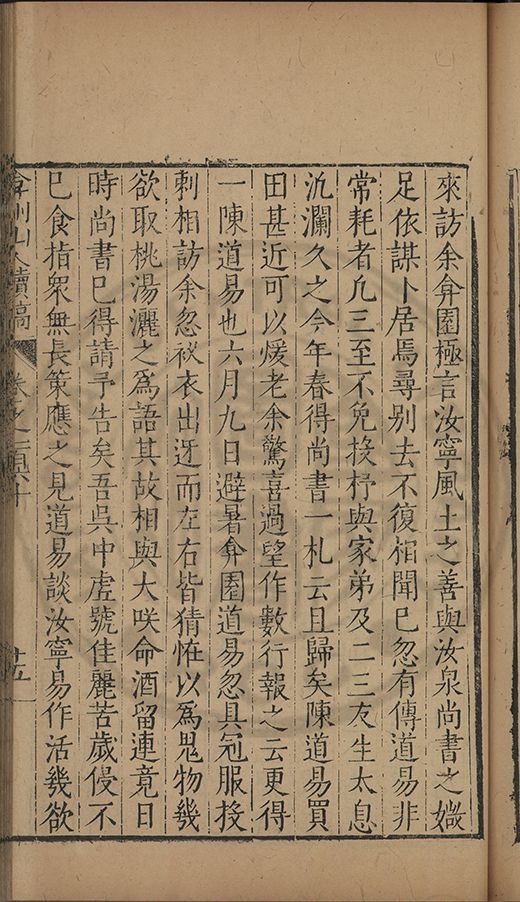 來訪余弇園極言汝寧風土之善與汝泉尚書之媺
足依謀卜居焉尋別去不復相聞已忽有傳道易非
常耗者凡三至不免投杼與家弟及二三友生太息
汍瀾久之今年春得尚書一札云且歸矣陳道易買
田甚近可以煖老余驚喜過望作數行報之云更得
一陳道易也六月九日避暑弇園道易忽具冠服投
刺相訪余忽衩衣出迓而左右皆猜恠以為鬼物幾
欲取桃湯灑之為語其故相與大咲命酒留連竟日
時尚書已得請予告矣吾吳中虗號佳麗苦歲侵不
已食指眾無長策應之見道易談汝寧易作活幾欲
弇州山人續稿 卷之 十 十五